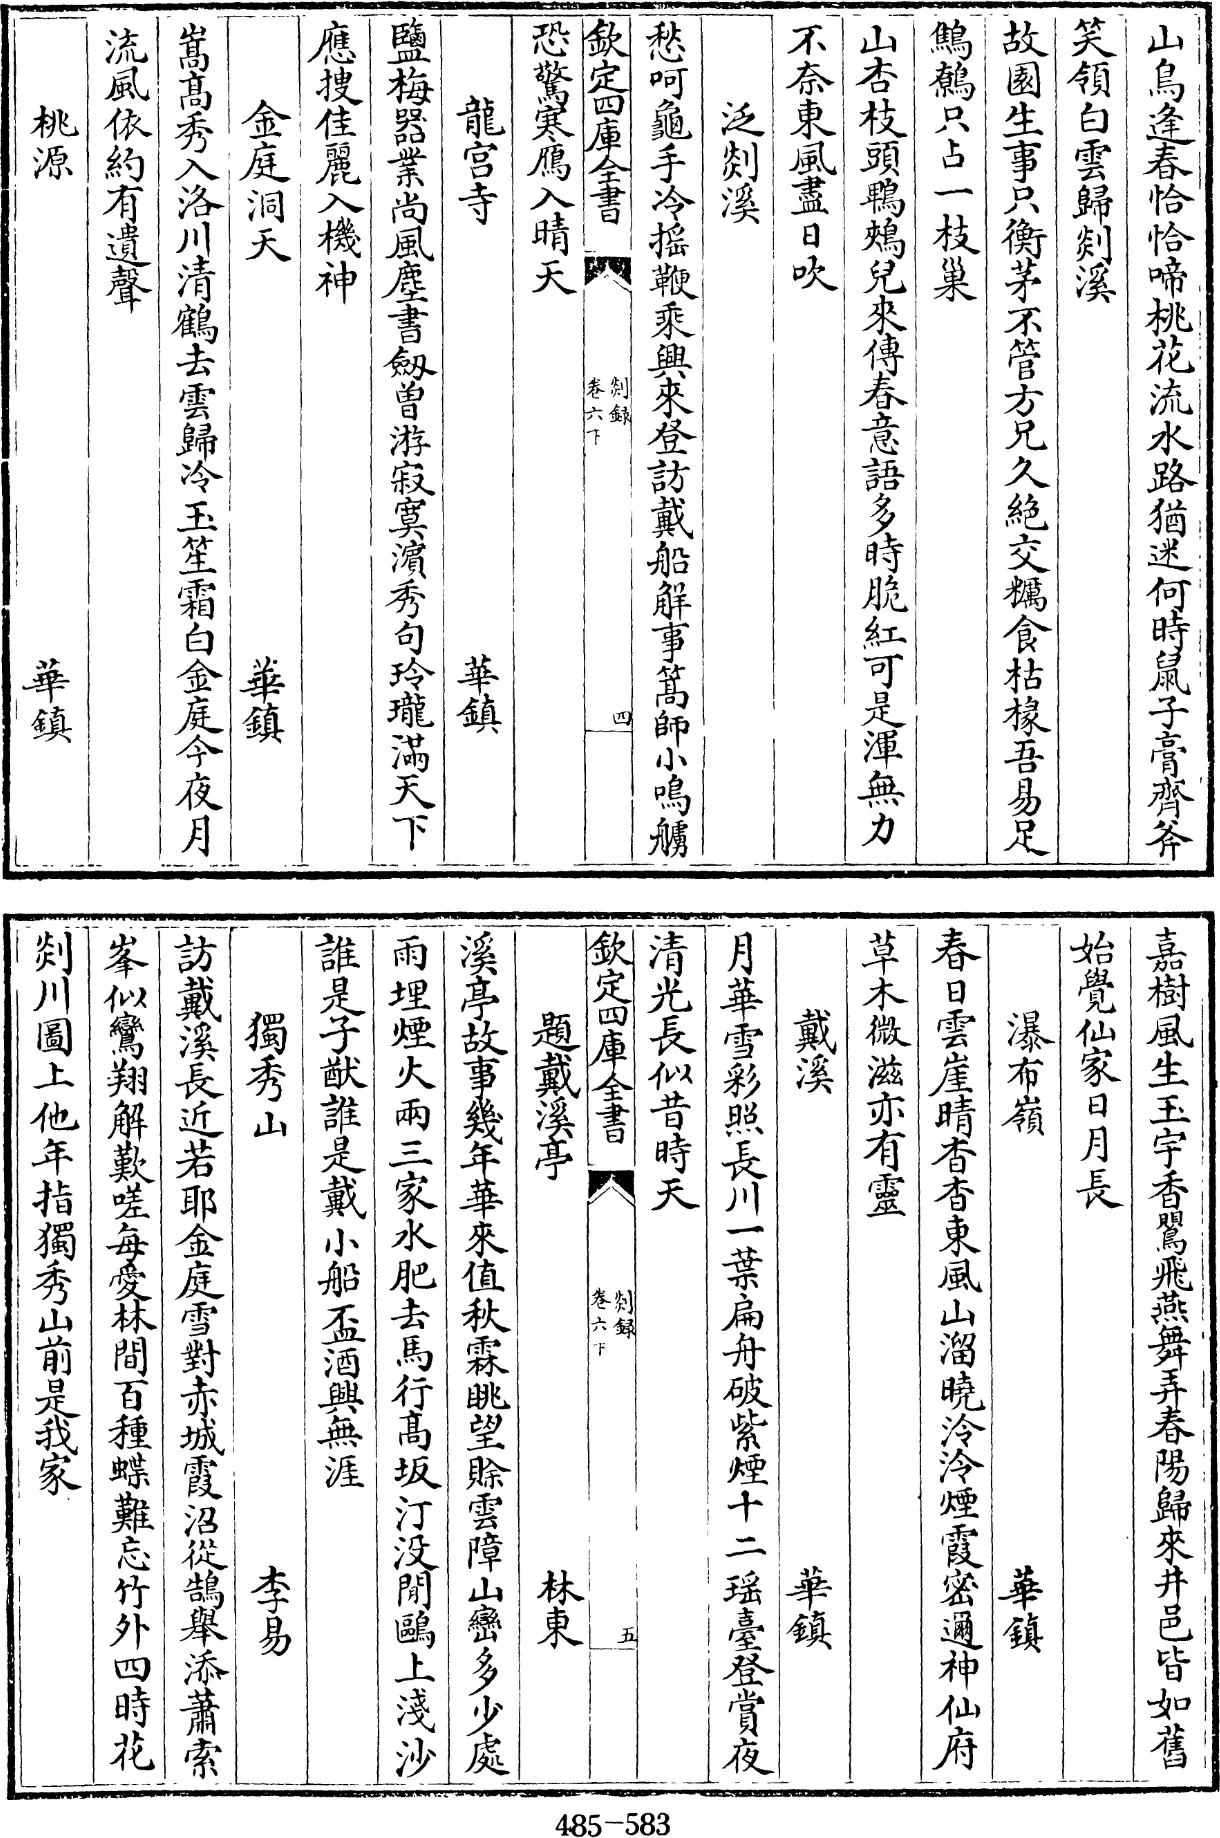 山鳥逢春恰恰啼桃花流水路猶迷何時鼠子膏齊斧
笑領白雲歸剡溪
故園生事只衡茅不管方兄久絶交糲食枯椽吾易足
鷦鷯只占一枝巢
山杏枝頭鴨鵊兒來傳春意語多時脆紅可是渾無力
不奈東風盡日吹
泛剡溪
愁呵龜手冷搖鞭乘興來登訪戴船解事篙師小鳴艣
欽定四庫全書
剡録
卷六下
四
恐驚寒鴈入晴天
龍宮寺 華鎮
鹽梅器業尚風塵書劔曽游寂寞濵秀句玲瓏滿天下
應搜佳麗入機神
金庭洞天 華鎮
嵩髙秀入洛川清鶴去雲歸冷玉笙霜白金庭今夜月
流風依約有遺聲
桃源 華鎮
嘉樹風生玉宇香鸎飛燕舞弄春陽歸來井邑皆如舊
始覺仙家日月長
瀑布嶺 華鎮
春日雲崖晴杳杳東風山溜曉泠泠煙霞密邇神仙府
草木微滋亦有靈
戴溪 華鎮
月華雪彩照長川一葉扁舟破紫煙十二瑶臺登賞夜
清光長似昔時天
欽定四庫全書
剡録
卷六下
五
題戴溪亭 林東
溪亭故事幾年華來值秋霖眺望賒雲障山巒多少處
雨埋煙火兩三家水肥去馬行髙坂汀没閒鷗上淺沙
誰是子猷誰是戴小船盃酒興無涯
獨秀山 李易
訪戴溪長近若耶金庭雪對赤城霞沼從鵠舉添蕭索
峯似鸞翔解歎嗟每愛林間百種蝶難忘竹外四時花
剡川圖上他年指獨秀山前是我家
485-583